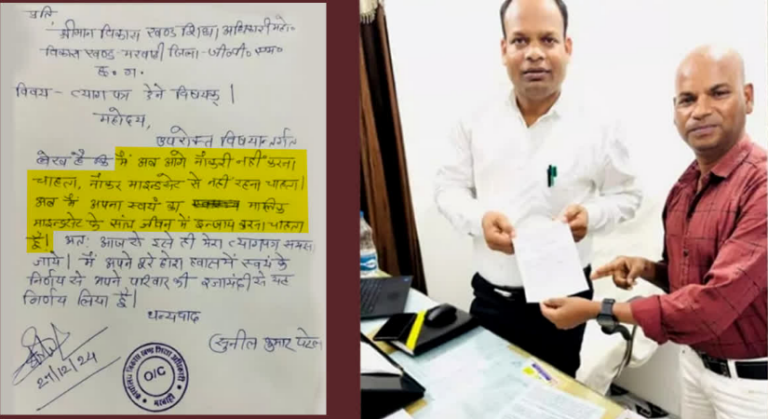 प्रति
श्रीमान विकास खण्ड शिक्षा अधिकारी महो०
विकास खण्ड - मरवाही जिला - जी०पी०एम०
छ. ग.
विषय - त्याग पत्र देने विषयक।
महोदय,
उपरोक्त विषयान्तर्गत
लेख है कि मैं अब आगे नौकरी नहीं करना
चाहता, नौकर माइन्डसेट से नहीं रहना चाहता।
अब मैं अपना स्वयं का मालिक
माइन्डसेट के साथ जीवन में इन्जाय करना चाहता
हूँ। अतः आज से इसे ही मेरा त्यागपत्र समझा
जाये। मैं अपने पूरे होश हवास में स्वयं के
निर्णय से अपने परिवार की रजामंदी से यह
निर्णय लिया हूँ।
धन्यवाद
सुनील कुमार पटेल
27/12/24
O/C